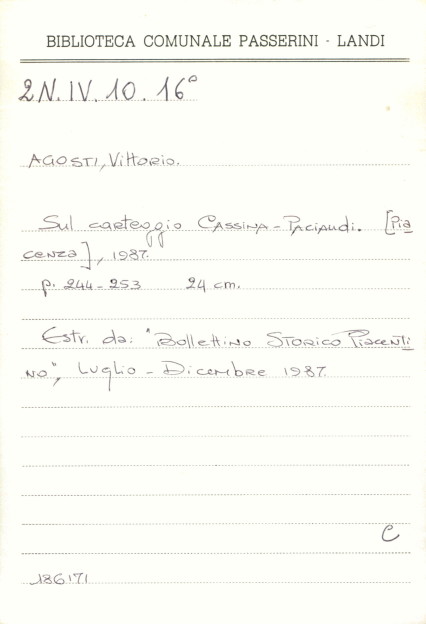 BIBLIOTECA COMUNALE PASSERINI - LANDI
2N.IV.10.16°
AGOSTI, Vittorio.
Sul carteggio CASSINA - PACIAUDI. [Pia
cenza], 1987.
p. 244-253 24 cm.
Estr. da: "Bollettino Storico Piacenti
no", Luglio - Dicembre 1987.
C
186171